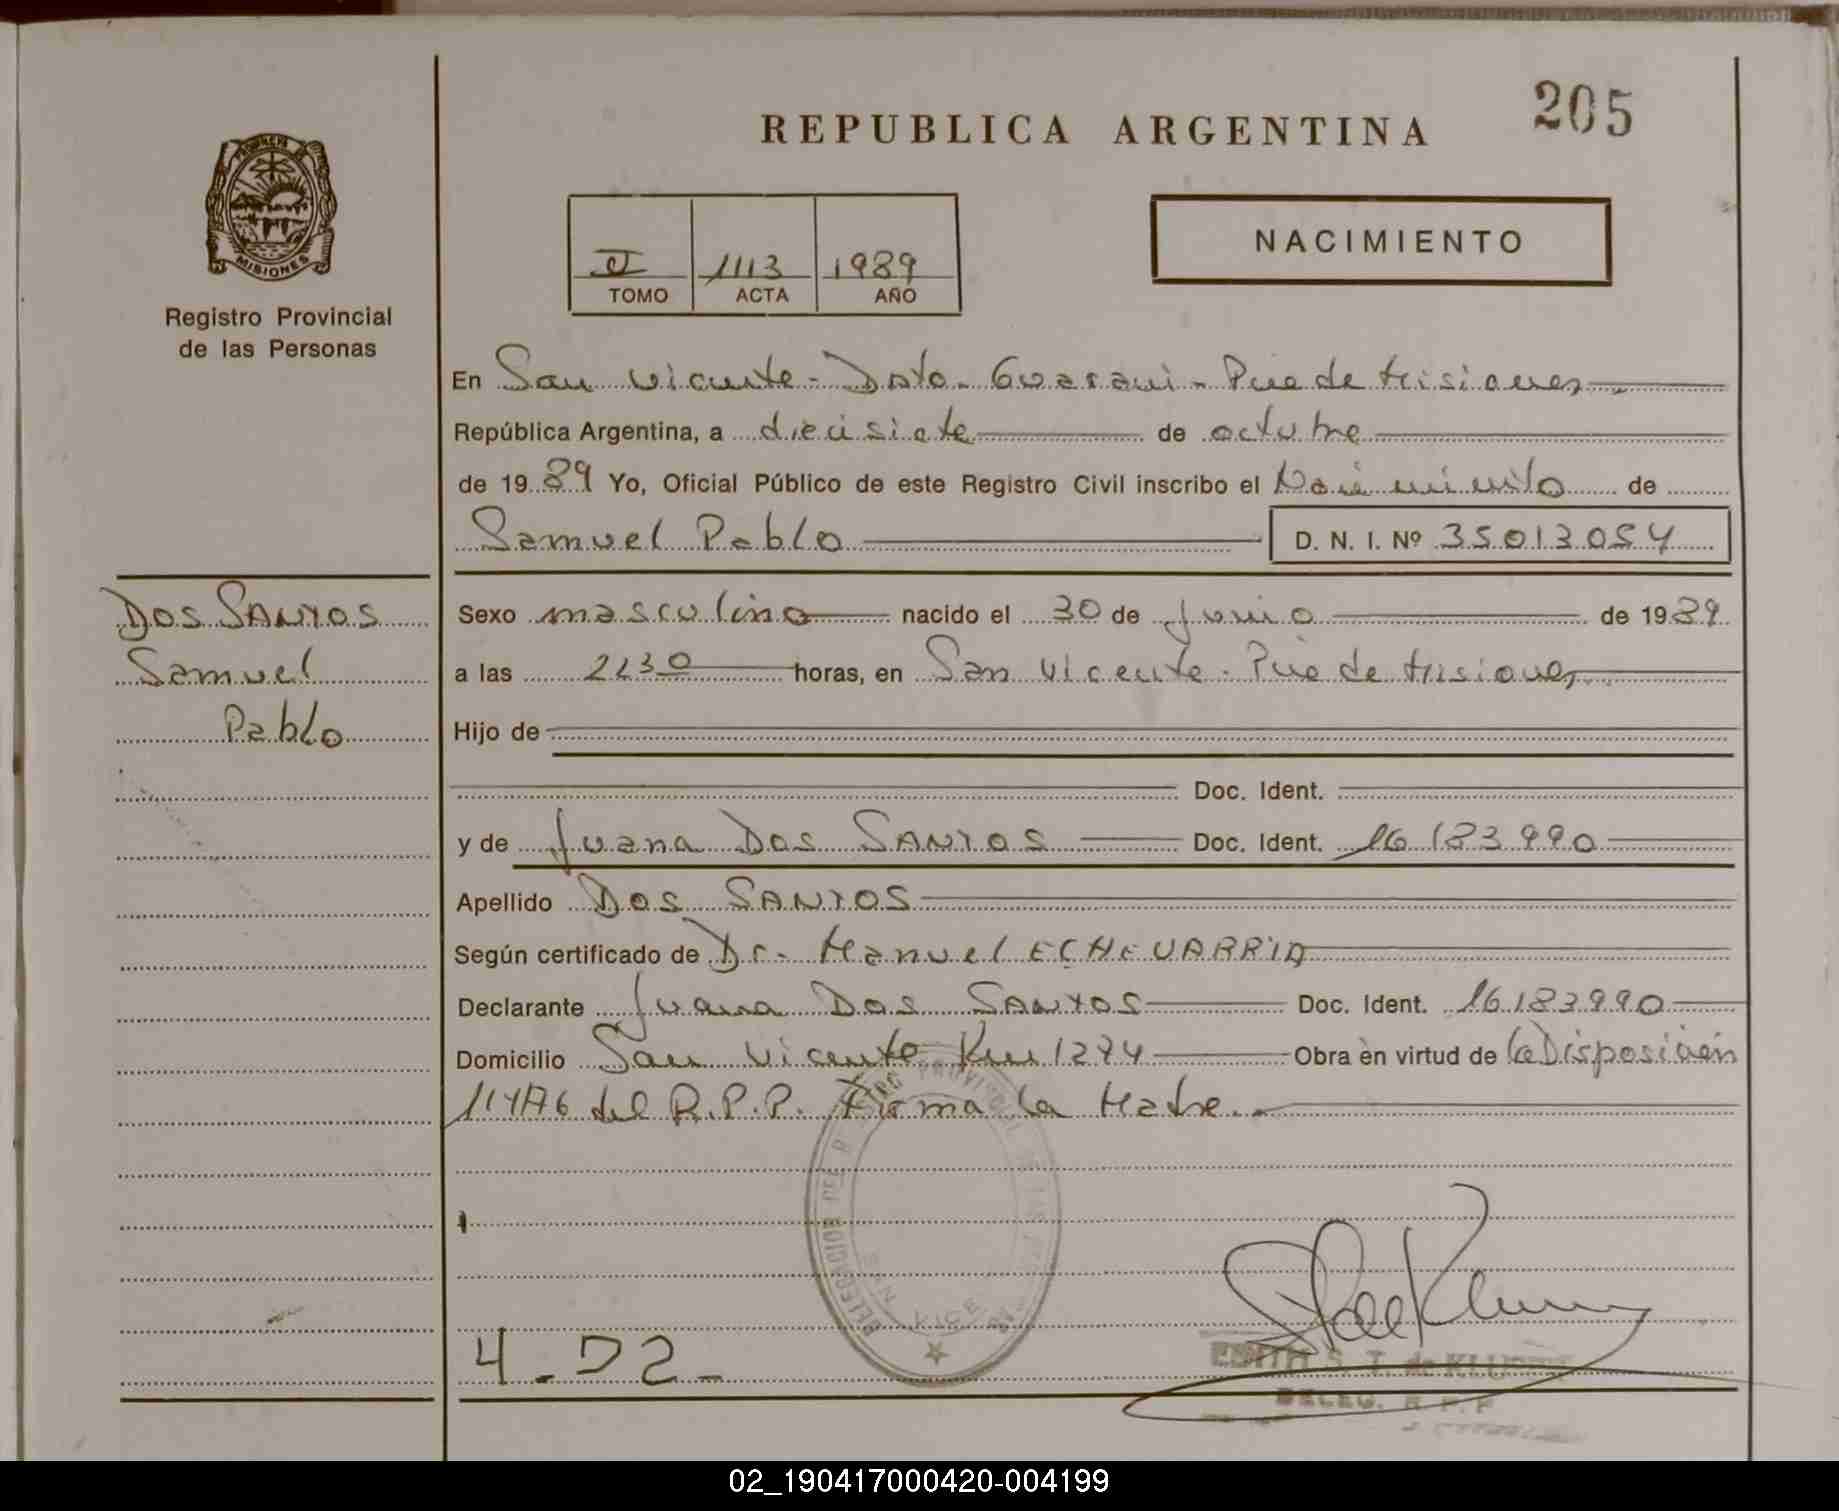 205
REPUBLICA ARGENTINA
PROVINCIA DE
MISIONES
Registro Provincial
de las Personas
II 1113 1989
TOMO ACTA AÑO
NACIMIENTO
En San Vicente - Dpto. Guarani - Pcia de Misiones
República Argentina, a diecisiete de octubre
de 1989 Yo, Oficial Público de este Registro Civil inscribo el Nacimiento de
Samuel Pablo D. N. I. Nº 35013054
DOS SANTOS
Samuel
Pablo
Sexo masculino nacido el 30 de Junio de 1989
a las 2230 horas, en San Vicente - Pcia de Misiones
Hijo de
Doc. Ident.
y de Juana DOS SANTOS Doc. Ident. 16 183 990
Apellido DOS SANTOS
Según certificado de Dr. Manuel ECHEVARRIA
Declarante Juana DOS SANTOS Doc. Ident. 16.183.990
Domicilio San Vicente Km 1274 Obra en virtud de la Disposición
del R.P.P. Firma la Madre.
DELEGACION DEL REGISTRO PROVINCIAL DE LAS
SAN VICENTE
4-D2-
EDITH S. T. de
DELEG. R. P. P
02_190417000420-004199